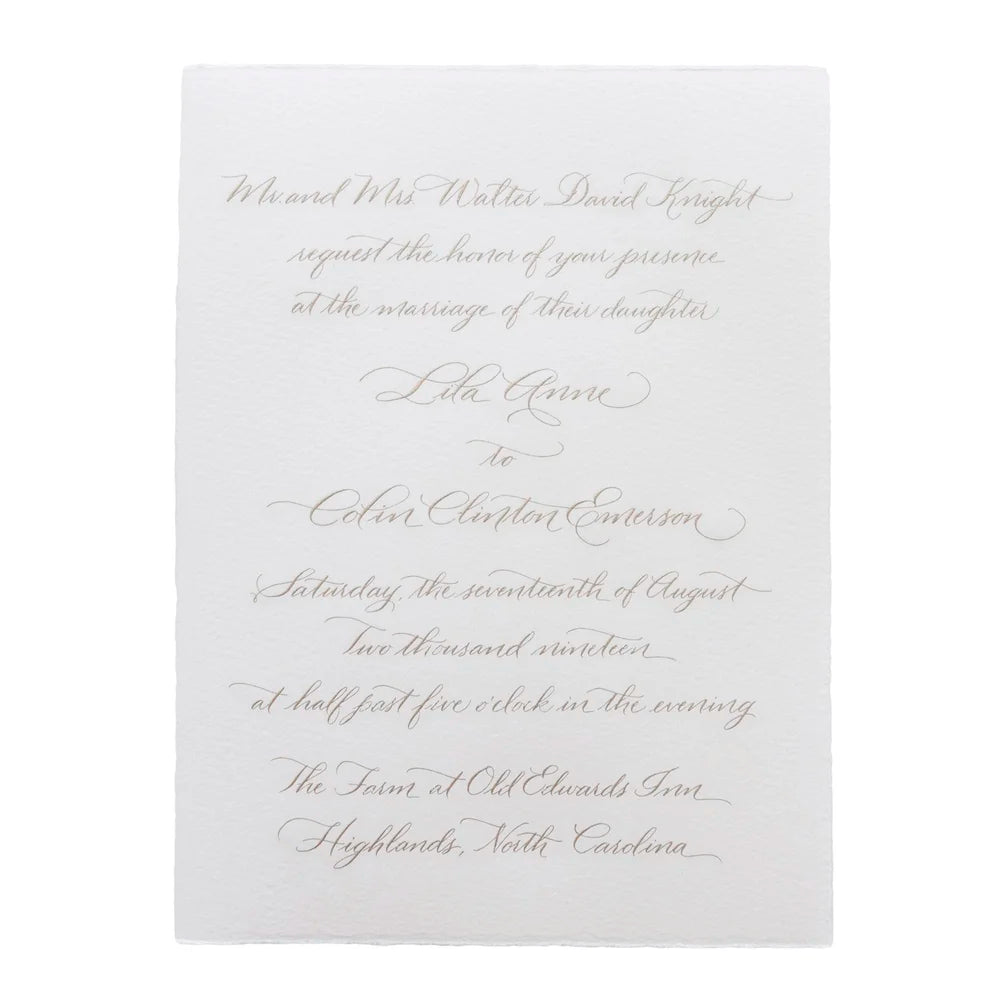 Mr. and Mrs. Walter David Knight
request the honor of your presence
at the marriage of their daughter
Lila Anne
to
Colin Clinton Emerson
Saturday, the seventeenth of August
Two thousand nineteen
at half past five o'clock in the evening
The Farm at Old Edwards Inn
Highlands, North Carolina